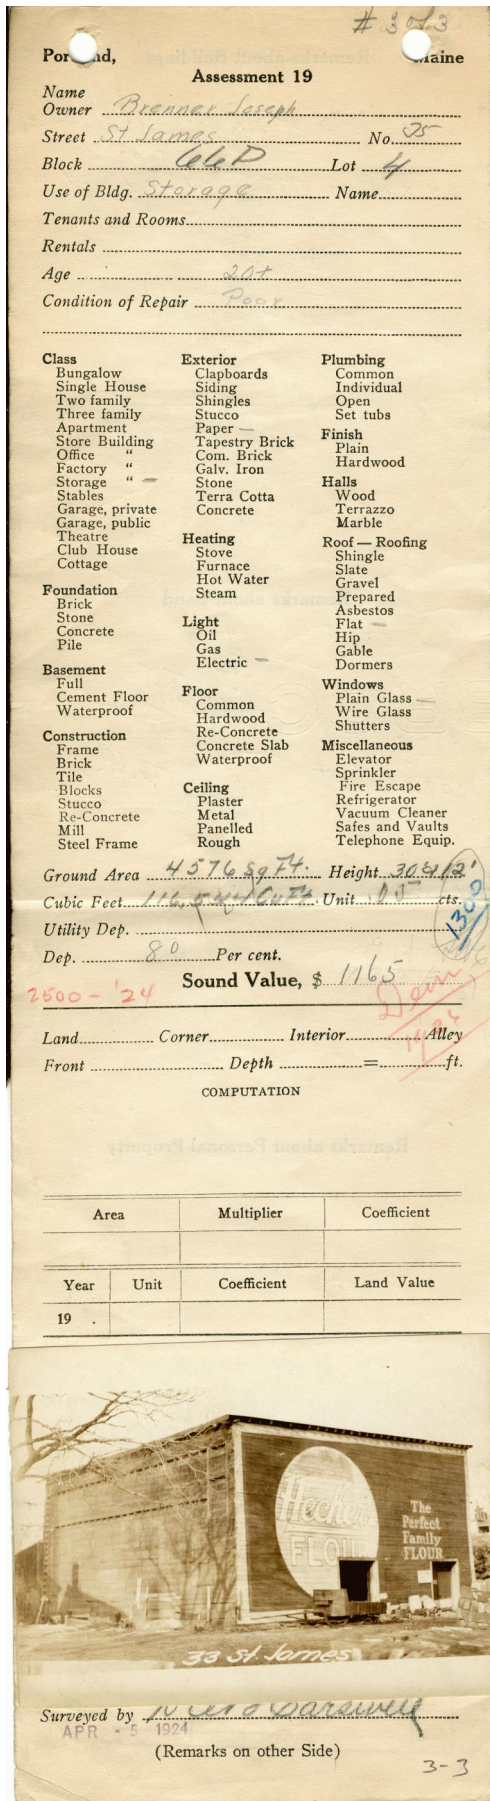 # 3 of 3
Portland, Maine
Assessment 19
Name
Owner Brenner Joseph
Street St James No. 35
Block 66D Lot 4
Use of Bldg. Storage Name
Tenants and Rooms
Rentals
Age 20+
Condition of Repair Poor
Class
Bungalow
Single House
Two family
Three family
Apartment
Store Building
Office "
Factory "
Storage " —
Stables
Garage, private
Garage, public
Theatre
Club House
Cottage
Foundation
Brick
Stone
Concrete
Pile
Basement
Full
Cement Floor
Waterproof
Construction
Frame
Brick
Tile
Blocks
Stucco
Re-Concrete
Mill
Steel Frame
Exterior
Clapboards
Siding
Shingles
Stucco
Paper —
Tapestry Brick
Com. Brick
Galv. Iron
Stone
Terra Cotta
Concrete
Heating
Stove
Furnace
Hot Water
Steam
Light
Oil
Gas
Electric —
Floor
Common
Hardwood
Re-Concrete
Concrete Slab
Waterproof
Ceiling
Plaster
Metal
Panelled
Rough
Plumbing
Common
Individual
Open
Set tubs
Finish
Plain
Hardwood
Halls
Wood
Terrazzo
Marble
Roof — Roofing
Shingle
Slate
Gravel
Prepared
Asbestos
Flat —
Hip
Gable
Dormers
Windows
Plain Glass —
Wire Glass
Shutters
Miscellaneous
Elevator
Sprinkler
Fire Escape
Refrigerator
Vacuum Cleaner
Safes and Vaults
Telephone Equip.
Ground Area 4576 Sq Ft. Height 30' & 12'
Cubic Feet Cu Ft. Unit 05 cts.
1300
Utility Dep.
Dep. 80 Per cent.
Sound Value, $ 1165
2500 - '24
Land Corner Interior Alley
Front Depth = ft.
COMPUTATION
Area Multiplier Coefficient
Year Unit Coefficient Land Value
19 .
Hecker's
FLOUR
The
Perfect
Family
FLOUR
33 St. James
Surveyed by
APR - 5 1924
(Remarks on other Side)
3-3